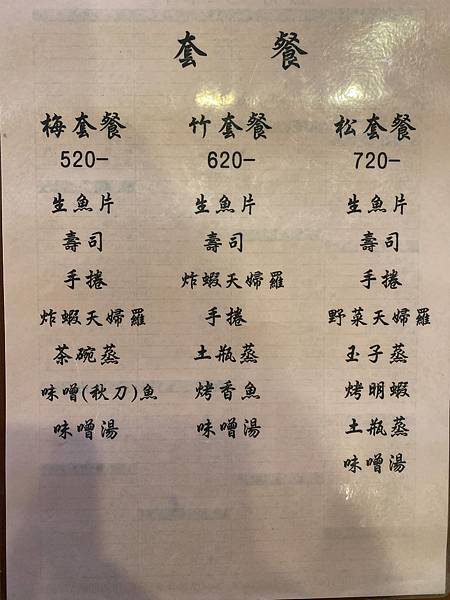 套 餐
梅套餐
520-
生魚片
壽司
手捲
炸蝦天婦羅
茶碗蒸
味噌(秋刀)魚
味噌湯
竹套餐
620-
生魚片
壽司
炸蝦天婦羅
手捲
土瓶蒸
烤香魚
味噌湯
松套餐
720-
生魚片
壽司
手捲
野菜天婦羅
玉子蒸
烤明蝦
土瓶蒸
味噌湯